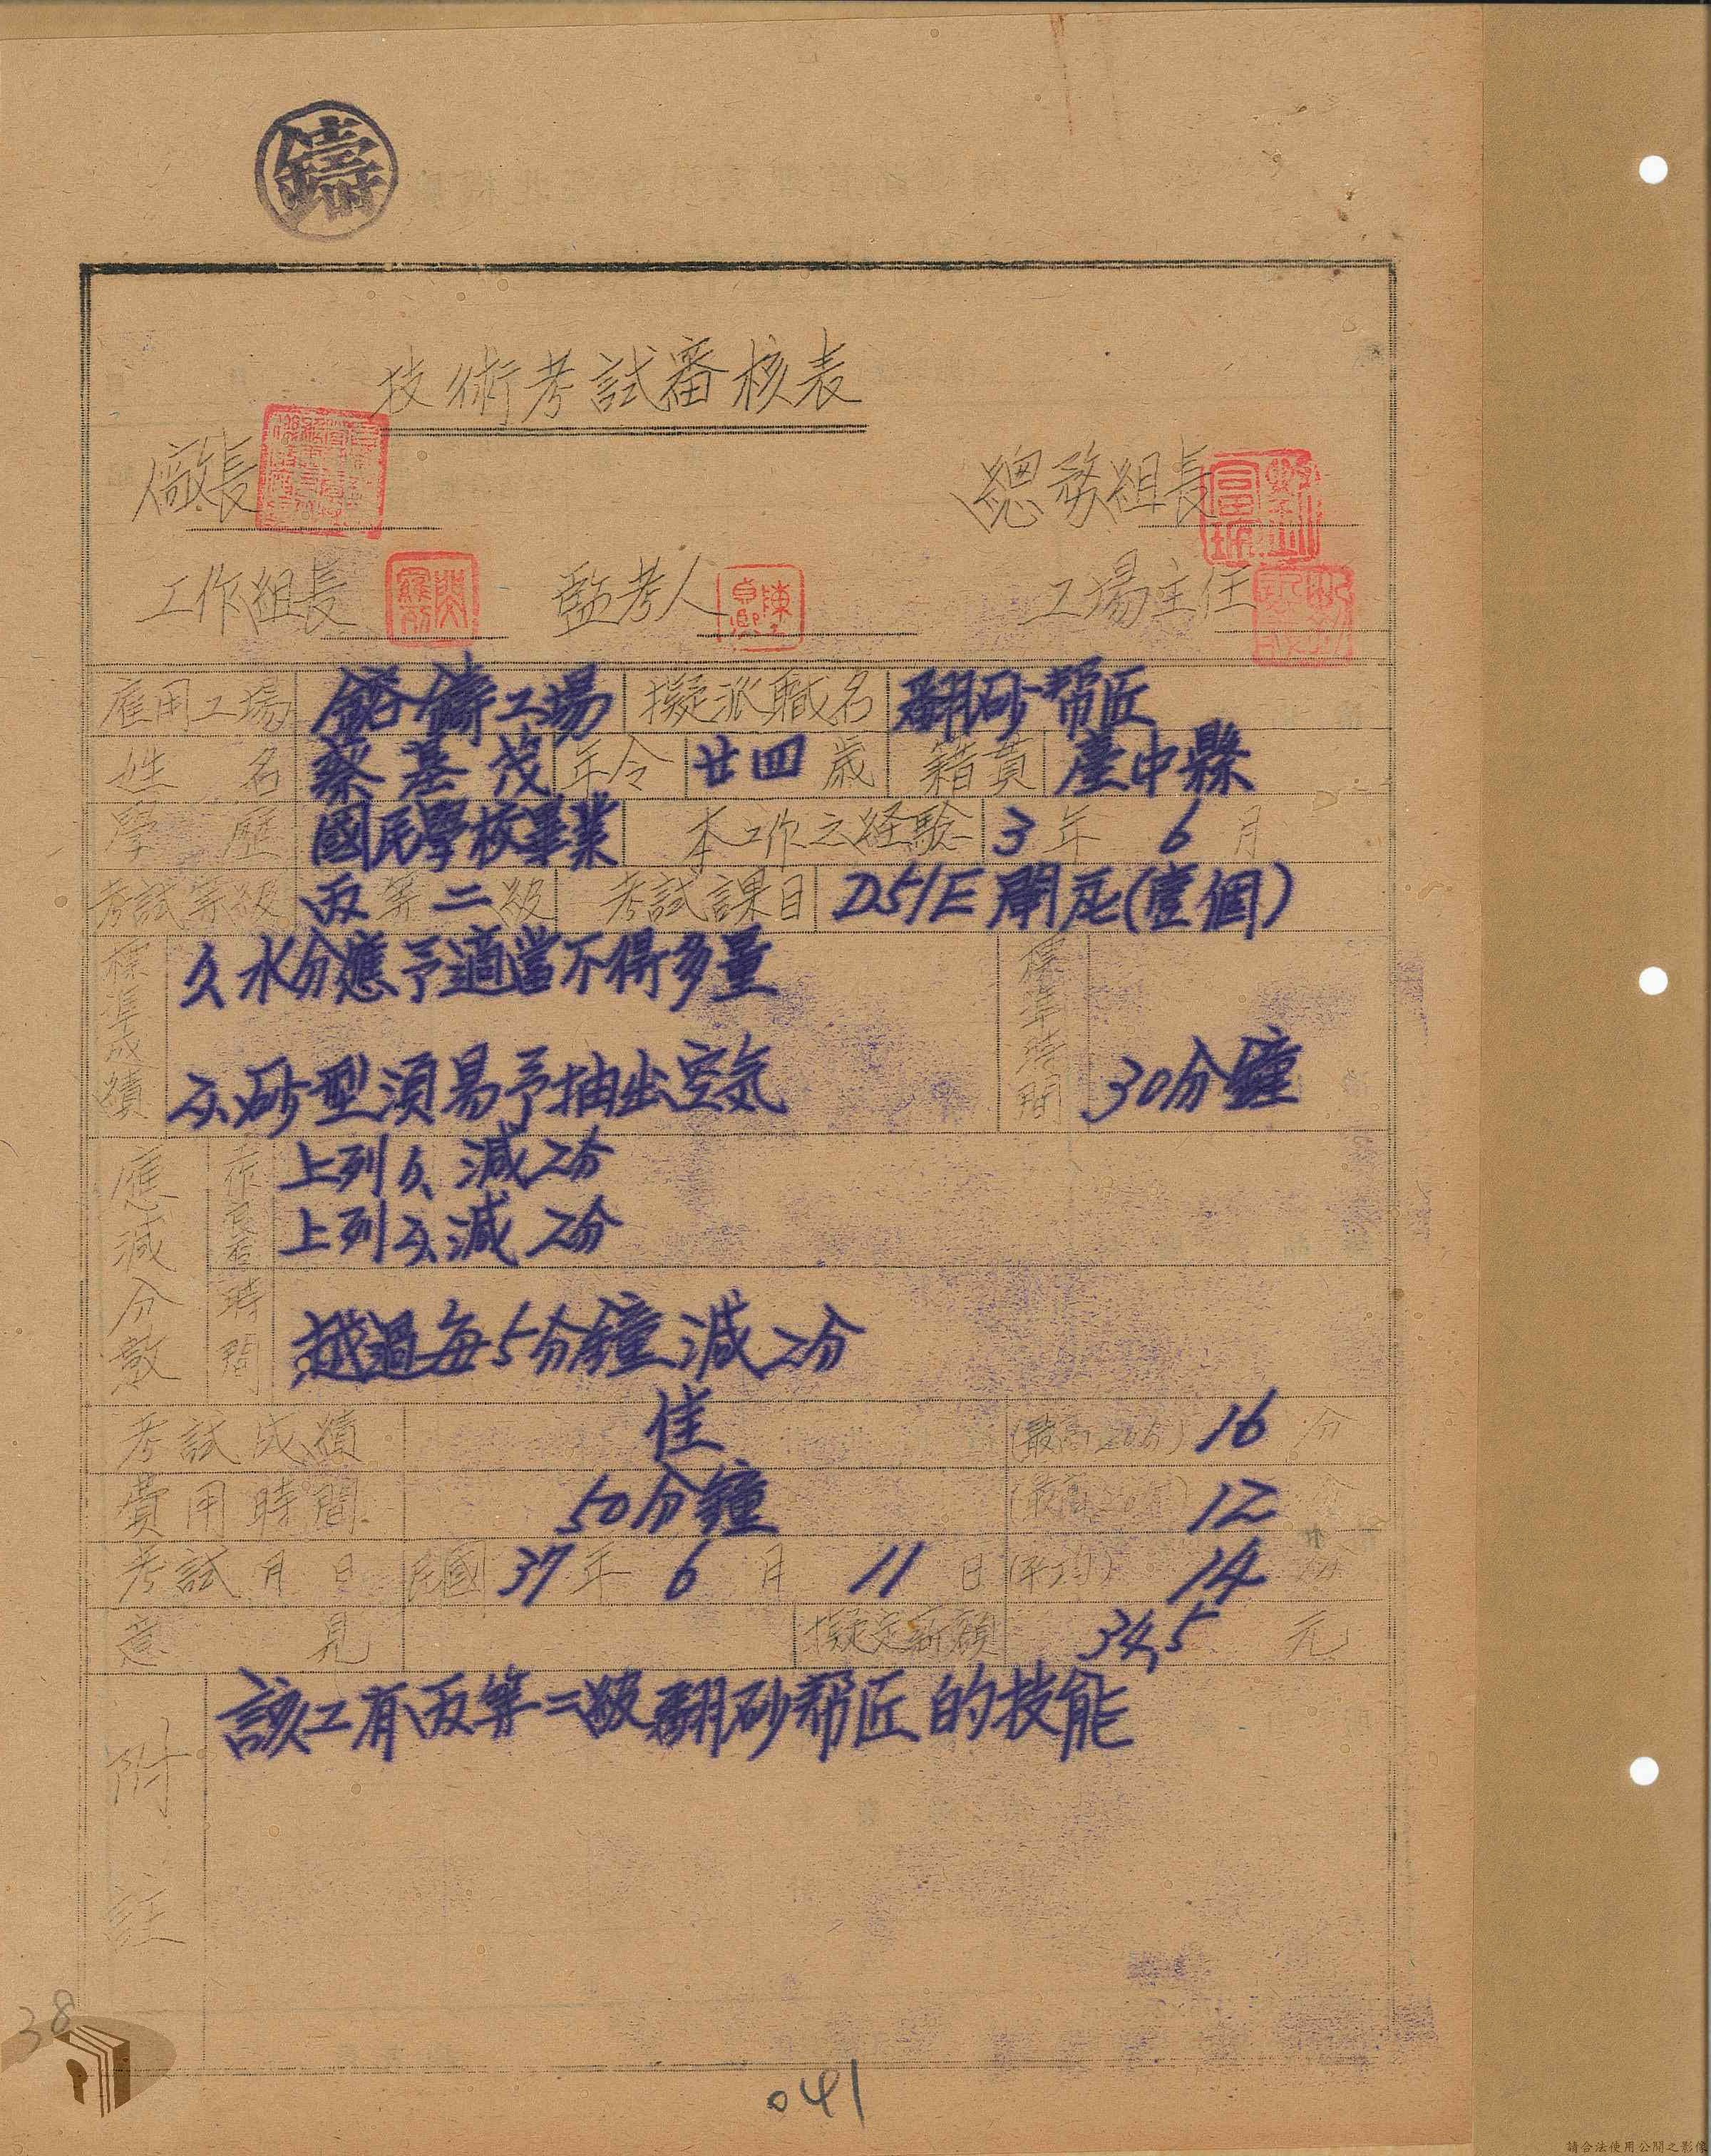 鑄
技術考試審核表
廠長 總務組長
工作組長 監考人 陳貞卿 工場主任
雇用工場 鎔鑄工場 擬派職名 翻砂帮匠
姓名 蔡基茂 年令 廿四歲 籍貫 臺中縣
學歷 國民學校畢業 本工作之経驗 3年6月
考試等級 丙等二級 考試課目 D51E 閘瓦(壹個)
標準成績 1、水分應予適當不得多量
2、砂型須易予抽出空気
標準時間 30分鐘
應減分數 上列1、減2分
上列2、減2分
時間 越過每5分鐘減2分
考試成績 佳 (最高20分) 16分
費用時間 50分鐘 (最高20分) 12分
考試月日 民國37年6月11日 (平均) 14分
意見 擬定薪額 34,5元
附註 該工有丙等二級翻砂帮匠的技能
38
041
請合法使用公開之影像